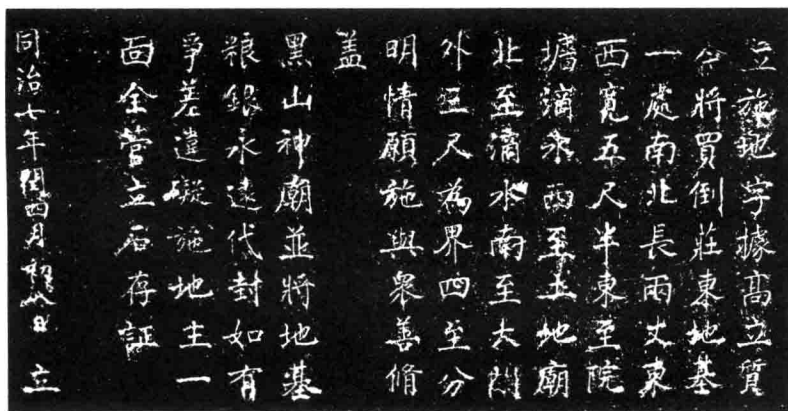 立施地字據高立質
今將買倒莊東地基
一處南北長兩丈東
西寬五尺半東至院
墻滴水西至土地廟
北至滴水南至大門
外三尺為界四至分
明情願施與眾善脩
盖
黑山神廟並將地基
粮銀永遠代封如有
爭差違礙施地主一
面全管立石存証
同治七年閏四月初八日 立